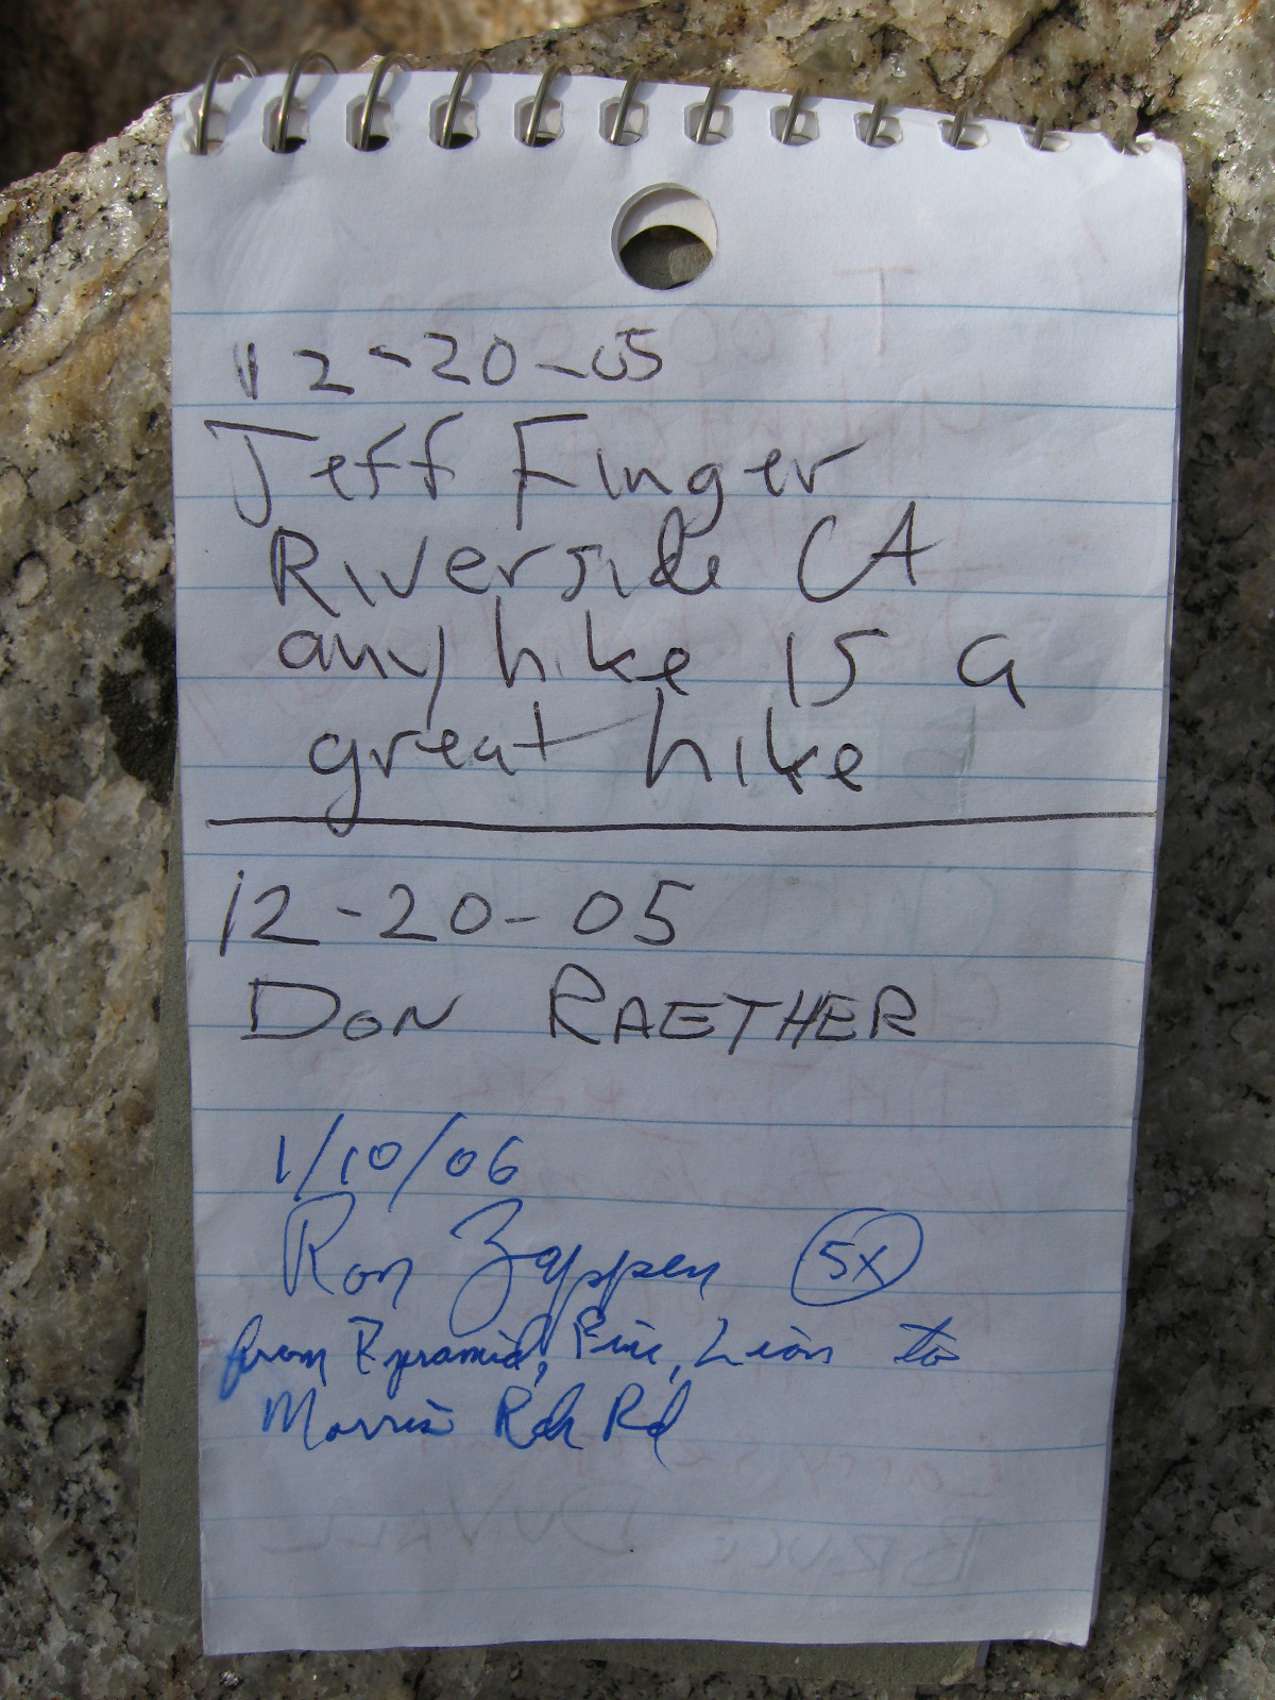 12-20-05
Jeff Finger
Riverside CA
any hike is a
great hike
12-20-05
DON RAETHER
1/10/06
Ron Zappen 5x
from Pyramid, Pine, Lion to
Morris Rch Rd